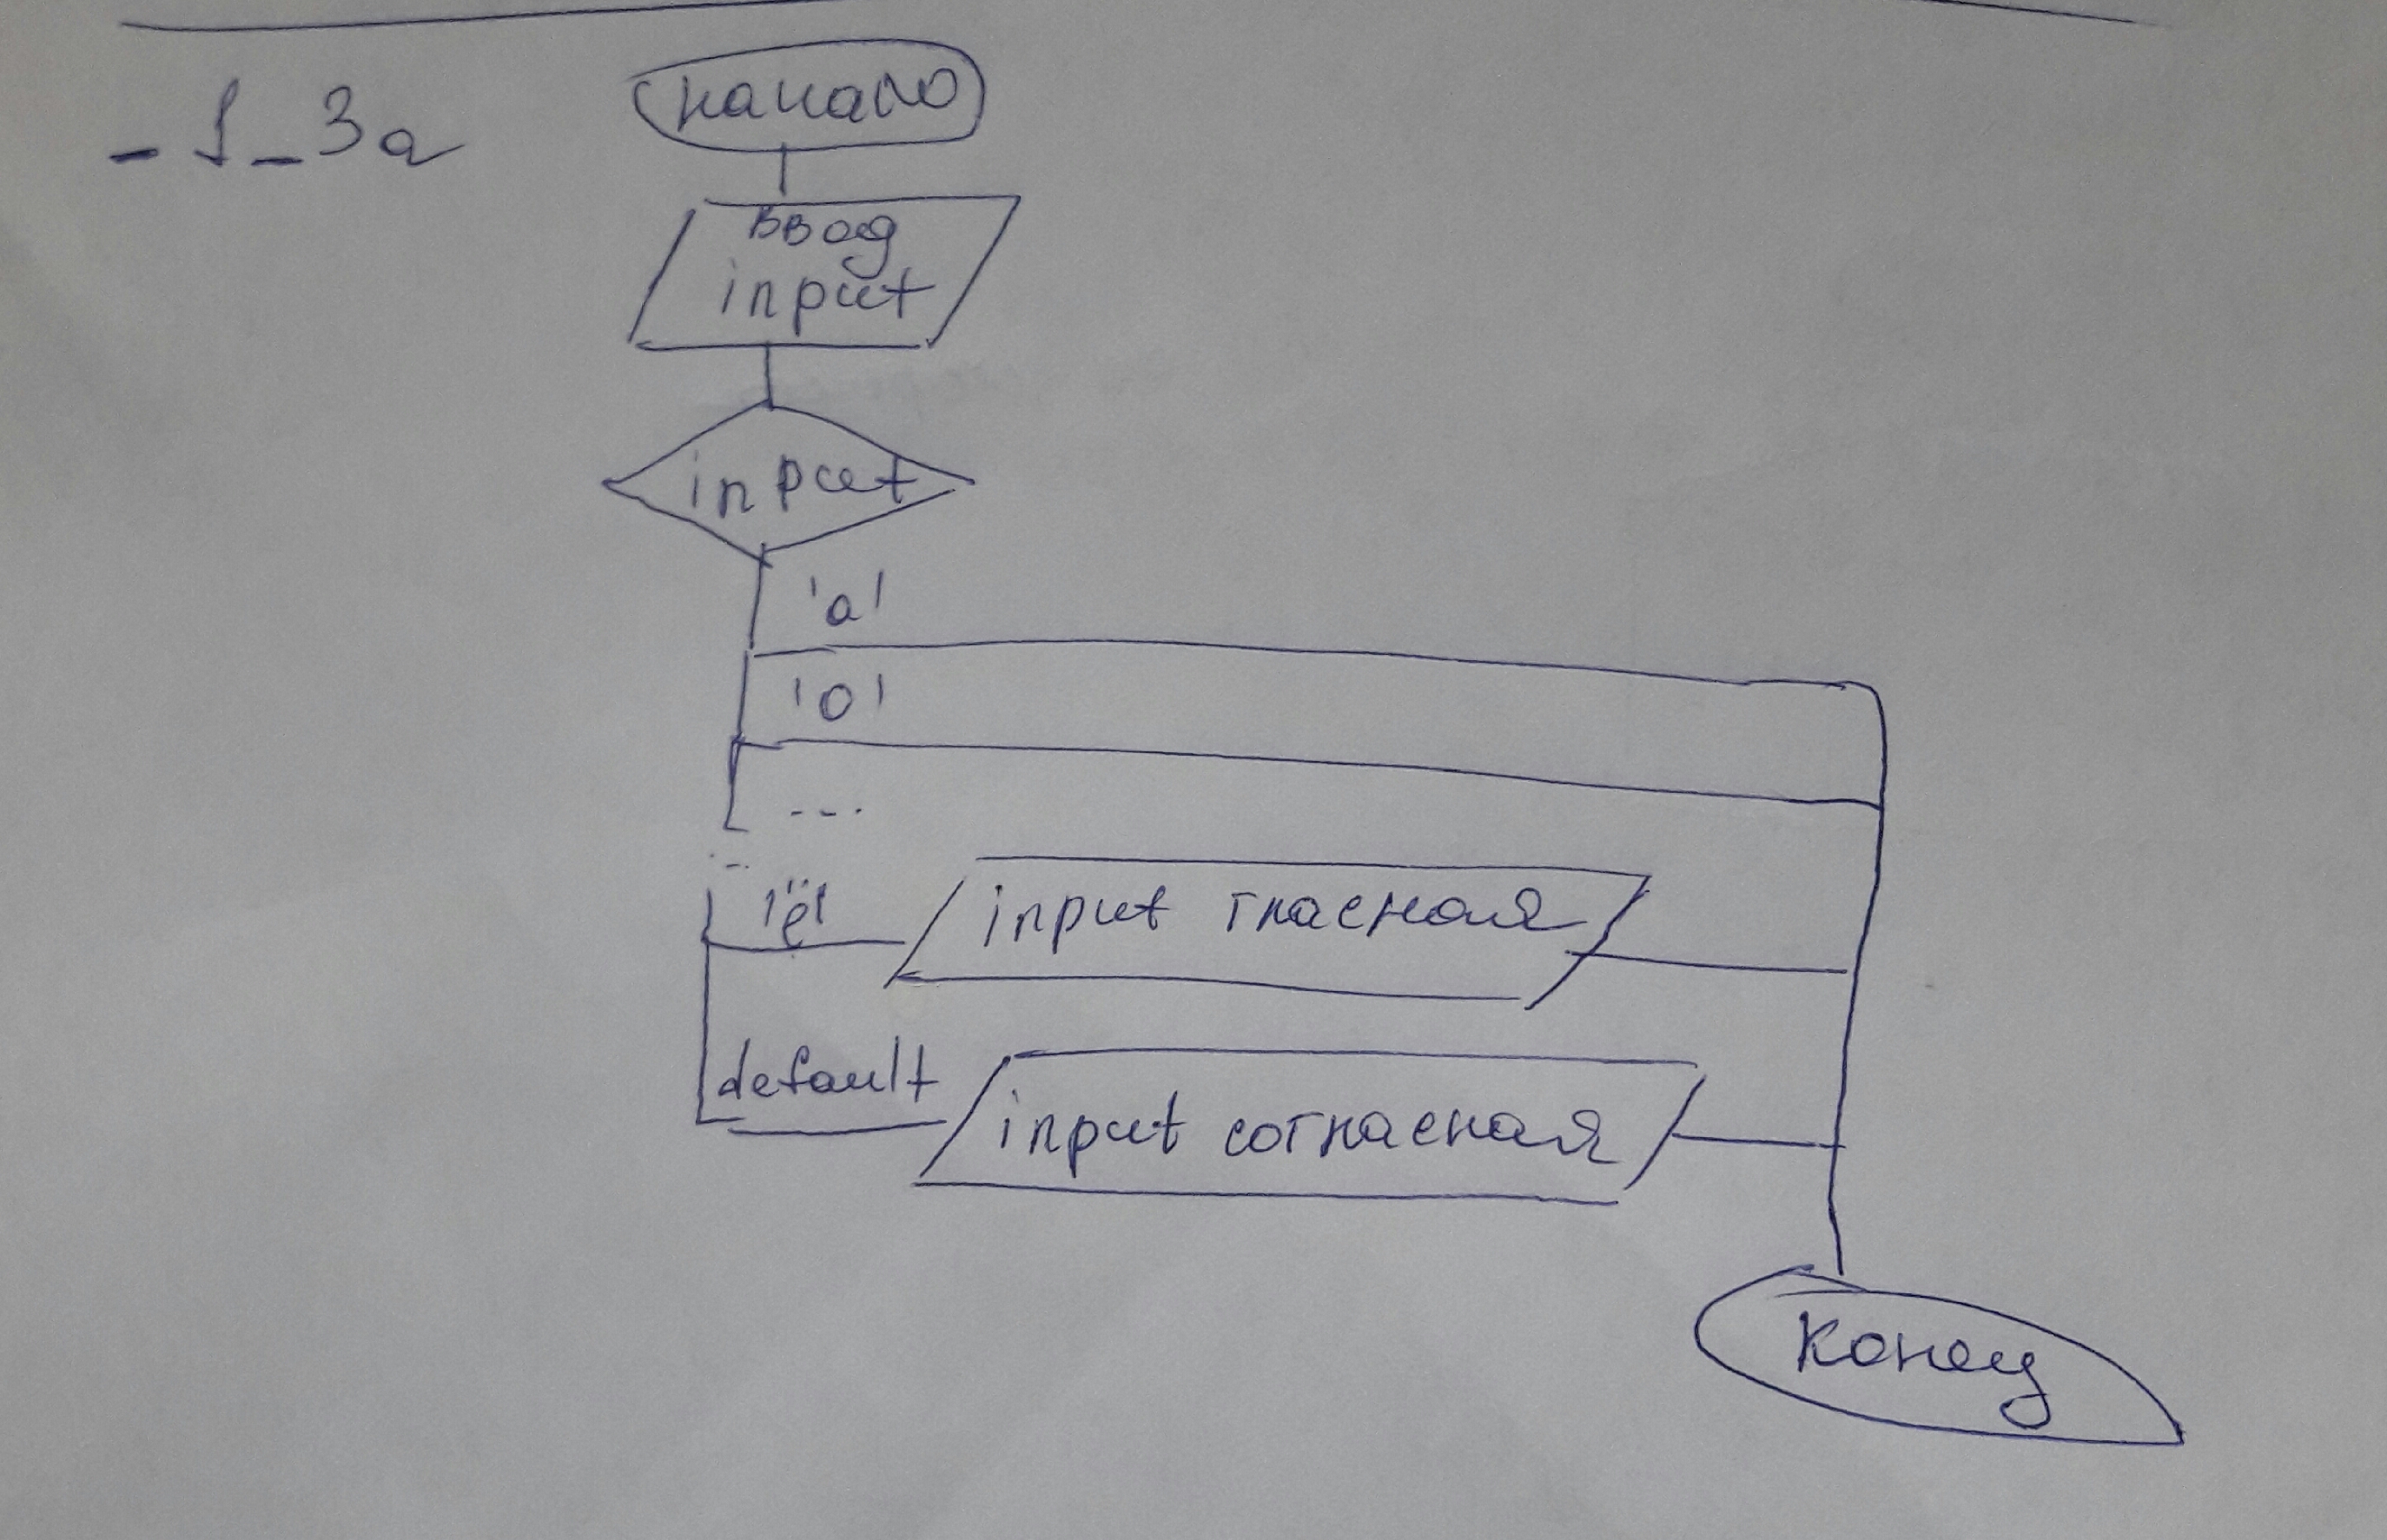 _1_3а
начало
Ввод
input
input
'а'
'о'
...
...
'ё' input гласная
default input согласная
конец